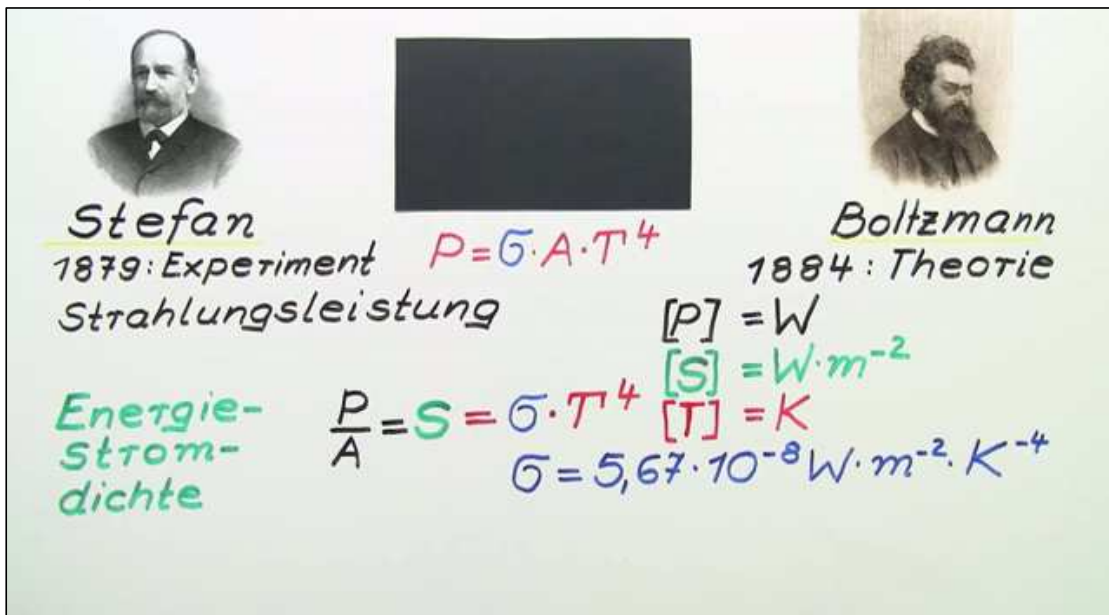 Stefan
1879: Experiment
Strahlungsleistung
P = σ · A · T⁴
Boltzmann
1884: Theorie
[P] = W
[S] = W · m⁻²
[T] = K
Energie-
strom-
dichte
P/A = S = σ · T⁴
σ = 5,67 · 10⁻⁸ W · m⁻² · K⁻⁴